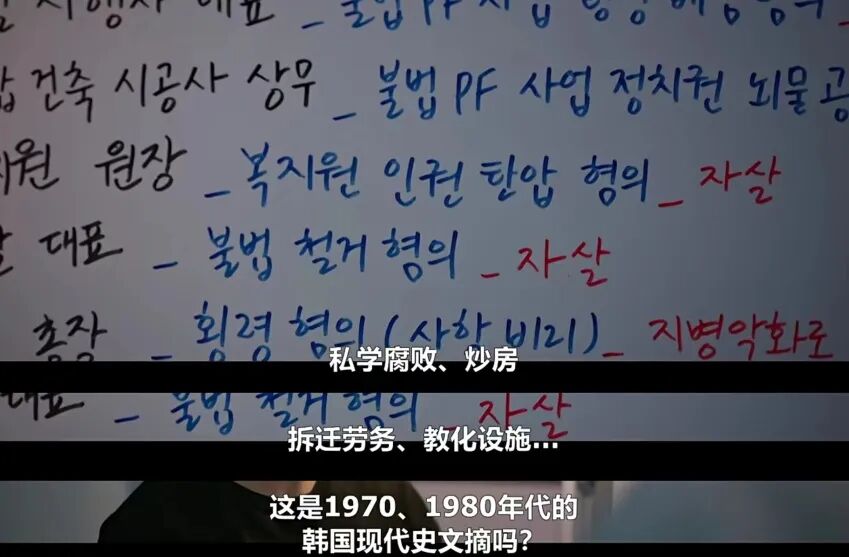 시행사 대표 _ 불법 PF 사업
건축 시공사 상무 _ 불법 PF 사업 정치권 뇌물 공
원장 _ 복지원 인권 탄압 혐의 _ 자살
대표 _ 불법 철거 혐의 _ 자살
총장 _ 횡령 혐의 (사학 비리) _ 지병악화로
私学腐败、炒房
대표 _ 불법 철거 혐의 _ 자살
拆迁劳务、教化设施...
这是1970、1980年代的
韩国现代史文摘吗?